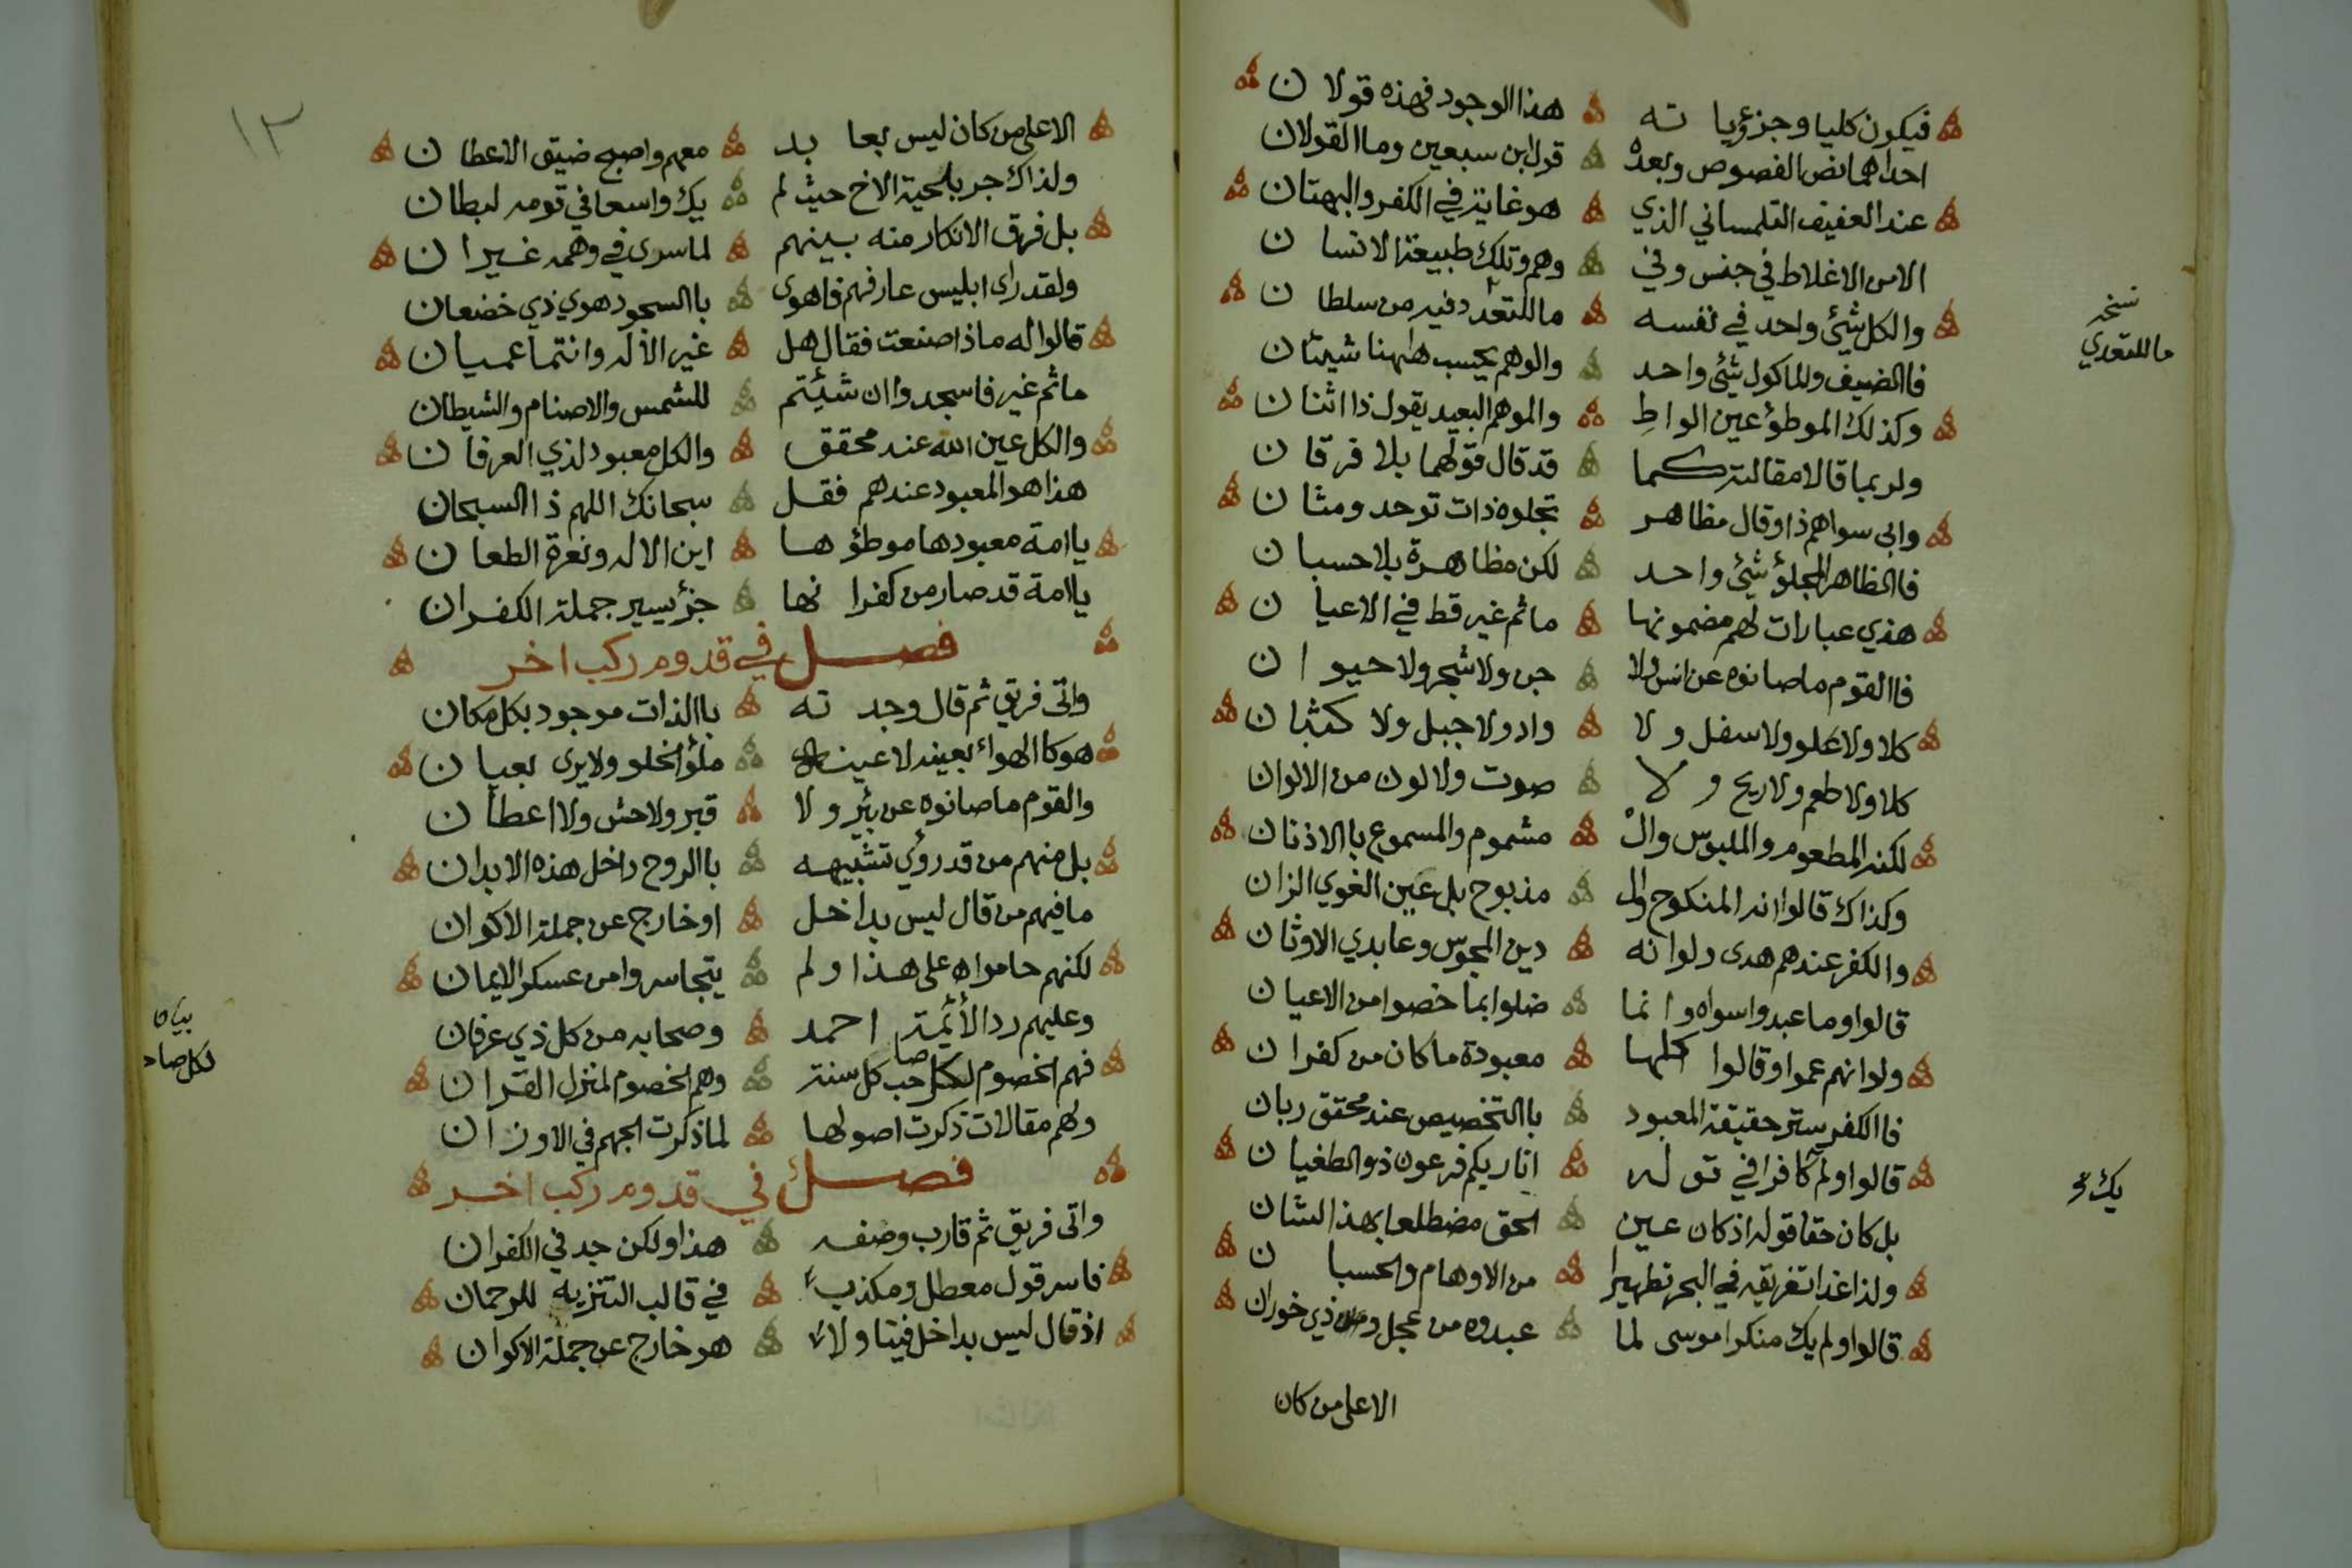 فيكون كليا وجزؤيا ته هذا الوجود فهذه قولان
احداهما نص الفصوص وبعده قول ابن سبعين وما القولان
عند العفيف التلمساني الذي هو غاية في الكفر والبهتان
الا من الاغلاط في جنس وفي وهم وتلك طبيعة الانسان
والكل شيئ واحد في نفسه ما للتعدد فيه من سلطان
نسخه
ما للتعدي
فاالضيف والماكول شئ واحد والوهم يحسب هاهنا شيئان
وكذلك الموطؤ عين الواطِ والموهم البعيد يقول ذا اثنان
ولربما قالا مقالته كما قد قال قولهما بلا فرقان
وابى سواهم ذا وقال مظاهر تجلوه ذات توحد ومثان
فاالظاهر المجلؤ شئ واحد لكن مظاهرة بلا حسبان
هذي عبارات لهم مضمونها ماثم غير قط في الاعيان
فاالقوم ماصانوه عن انس ولا جن ولا شجر ولا حيوان
كلا ولا علو ولا سفل ولا واد ولا جبل ولا كثبان
كلا ولا طعم ولا ريح ولا صوت ولا لون من الالوان
لكنه المطعوم والملبوس وال مشموم والمسموع باالاذنان
وكذاك قالوا انه المنكوح وال مذبوح بل عين الغوي الزان
والكفر عندهم هدى ولو انه دين المجوس وعابدي الاوثان
قالوا وما عبدوا سواه وانما ضلوا بما خصوا من الاعيان
ولو انهم عموا وقالوا كلها معبودة ماكان من كفران
فاالكفر ستر حقيقة المعبود باالتخصيص عند محقق ربان
قالوا ولم كافرا في قوله انا ربكم فرعون ذو الطغيان
يك صح
بل كان حقا قوله اذ كان عين الحق مضطلعا بهذا الشان
ولذا غدا تغريقه في البحر تطهيرا من الاوهام والحسبان
قالوا ولم يك منكرا موسى لما عبدوه من عجل ذي خوران
الاعلى من كان
١٣
الاعلى من كان ليس بعابد معهم واصبح ضيق الاعطان
ولذاك جر بلحية الاخ حيث لم يك واسعا في قومه لبطان
بل فرق الانكار منه بينهم لما سرى في وهمه غيران
ولقد راى ابليس عارفهم فاهوى باالسجود هوي ذي خضعان
قالوا له ماذا صنعت فقال هل غير الاله وانتما عميان
ماثم غير فاسجدوا ان شيئتم للشمس والاصنام والشيطان
والكل عين الله عند محقق والكل معبود لذي العرفان
هذا هو المعبود عندهم فقل سبحانك اللهم ذا السبحان
ياامة معبودها موطؤها اين الاله ونغرة الطعان
ياامة قد صار من كفرانها جزؤ يسير جملة الكفران
فصل في قدوم ركب اخر
واتى فريق ثم قال وجدته باالذات موجود بكل مكان
هو كاالهواء بعينه لا عينه ملؤ الخلو ولا يرى بعيان
والقوم ماصانوه عن بئر ولا قبر ولا حش ولا اعطان
بل منهم من قد رؤي تشبيهه باالروح داخل هذه الابدان
مافيهم من قال ليس بداخل او خارج عن جملة الاكوان
لكنهم حاموا على هذا ولم يتجاسروا من عسكر الايمان
وعليهم رد الأئمة احمد وصحابه من كل ذي عرفان
فهم الخصوم لكل صاحب كل سنة وهم الخصوم لمنزل القران
بيان
لكل صاد
ولهم مقالات ذكرت اصولها لما ذكرت الجهم في الاوزان
فصل في قدوم ركب اخر
واتى فريق ثم قارب وصفه هذا ولكن جد في الكفران
فاسر قول معطل ومكذب في قالب التنزيه للرحمان
اذ قال ليس بداخل فينا ولا هو خارج عن جملة الاكوان